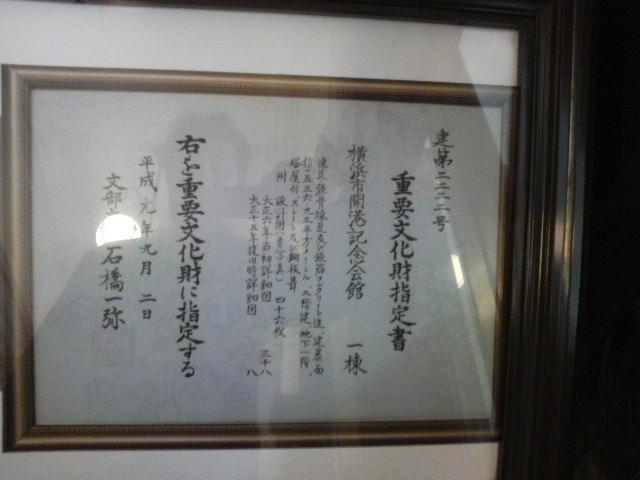 建第二二二二号
重要文化財指定書
横浜市開港記念会館 一棟
煉瓦、鉄骨煉瓦及び鉄筋コンクリート造、建築面
積一五三六・九三平方メートル、二階建、地下一階、
塔屋付、スレート及び銅板葺
附 設計図(青写真) 四十六枚
大正六年当初詳細図 三十八
大正十五年復旧時詳細図 八
右を重要文化財に指定する
平成元年九月二日
文部 石橋一弥